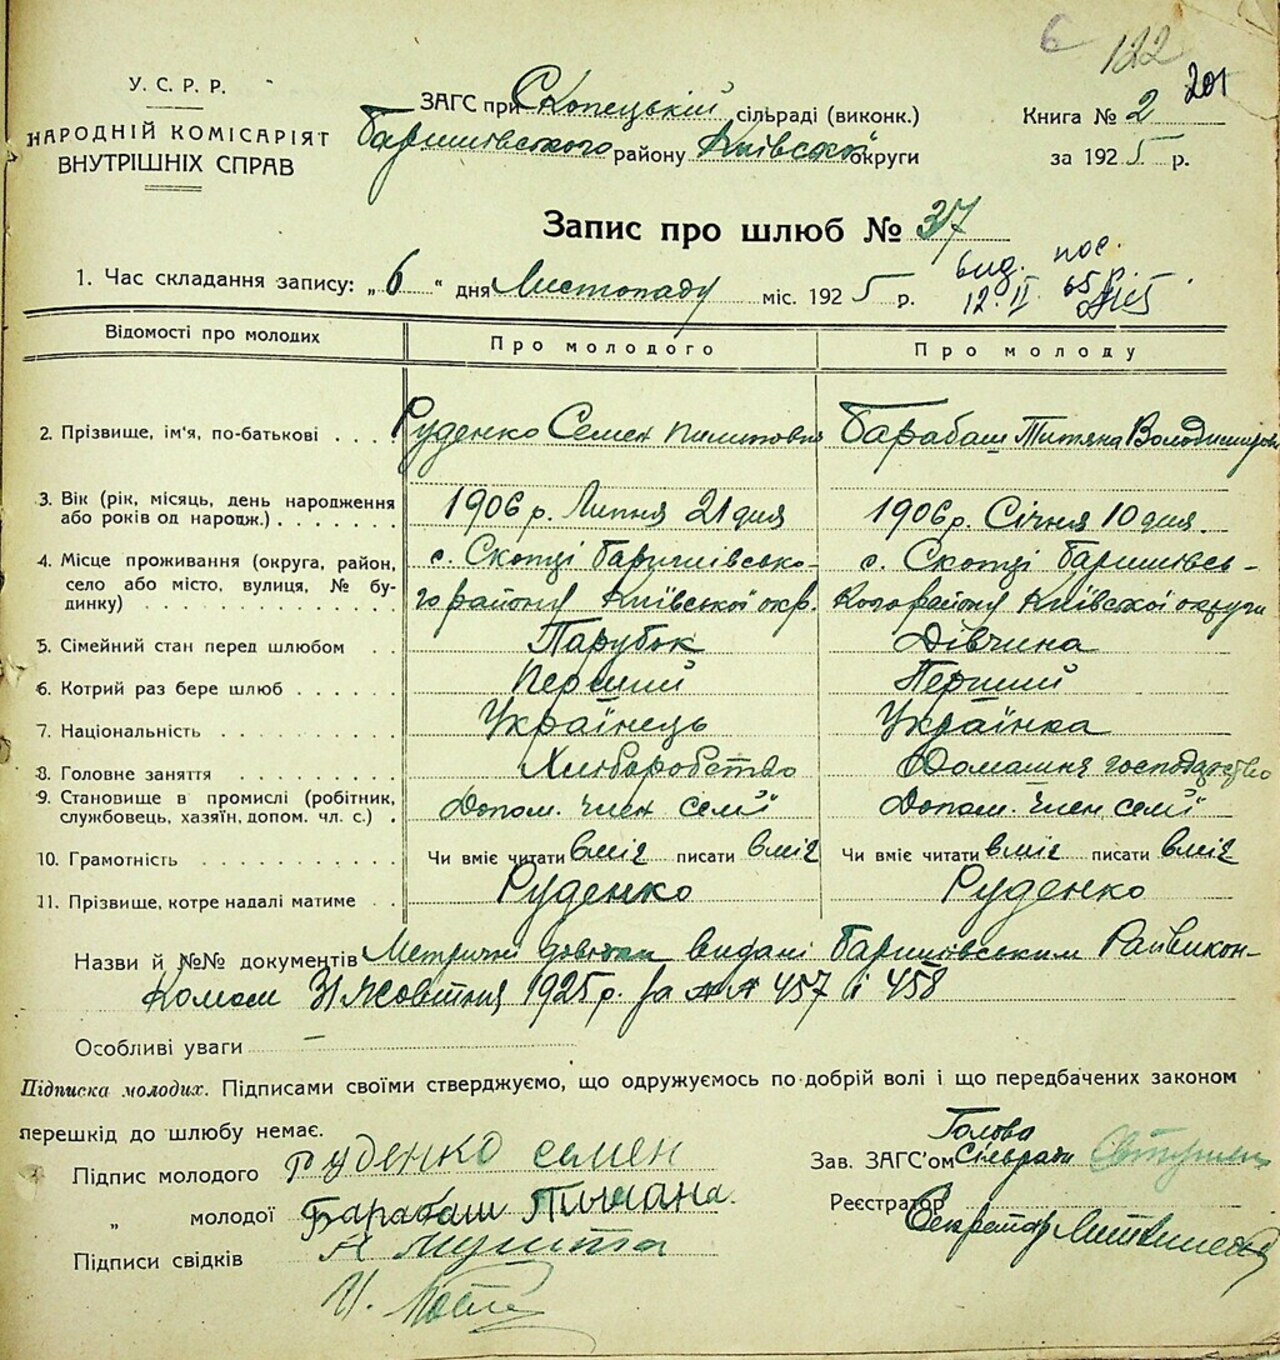 6 122
201
У. С. Р. Р.
НАРОДНІЙ КОМІСАРІЯТ
ВНУТРІШНІХ СПРАВ
ЗАГС при Скопецькій сільраді (виконк.)
Баришівського району Київської округи
Книга № 2
за 1925 р.
Запис про шлюб № 37
1. Час складання запису: „6" дня Листопаду міс. 1925 р.
вид. пос.
12. II. 65 р.
Відомості про молодих
Про молодого
Про молоду
2. Прізвище, ім'я, по-батькові . . . .
Руденко Семен Пилипович
Барабаш Титяна Володимирівн
3. Вік (рік, місяць, день народження
або років од народж.) . . . . . . .
1906 р. Липня 21 дня
1906 р. Січня 10 дня
4. Місце проживання (округа, район,
село або місто, вулиця, № бу-
динку) . . . . . . . . . . . . .
с. Скопці Баришівсько-
го району Київської окр.
с. Скопці Баришівсь-
кого району Київської округи
5. Сімейний стан перед шлюбом . .
Парубок
Дівчина
6. Котрий раз бере шлюб . . . . . .
Перший
Перший
7. Національність . . . . . . . . . .
Українець
Українка
8. Головне заняття . . . . . . . . .
Хліборобство
Домашня господарство
9. Становище в промислі (робітник,
службовець, хазяїн, допом. чл. с.) .
Допом. член семї
Допом. член семї
10. Грамотність . . . . . . . . . . .
Чи вміє читати вміє писати вміє
Чи вміє читати вміє писати вміє
11. Прізвище, котре надалі матиме . .
Руденко
Руденко
Назви й №№ документів Метричні довідки видані Баришівським Райвикон-
комом 31 Жовтня 1925 р. за №№ 457 і 458
Особливі уваги —
Підписка молодих. Підписами своїми стверджуємо, що одружуємось по добрій волі і що передбачених законом
перешкід до шлюбу немає.
Підпис молодого Руденко семен
„ молодої Барабаш Титяна.
Підписи свідків
Голова
Зав. ЗАГС'ом Сільради
Реєстратор
Секретар